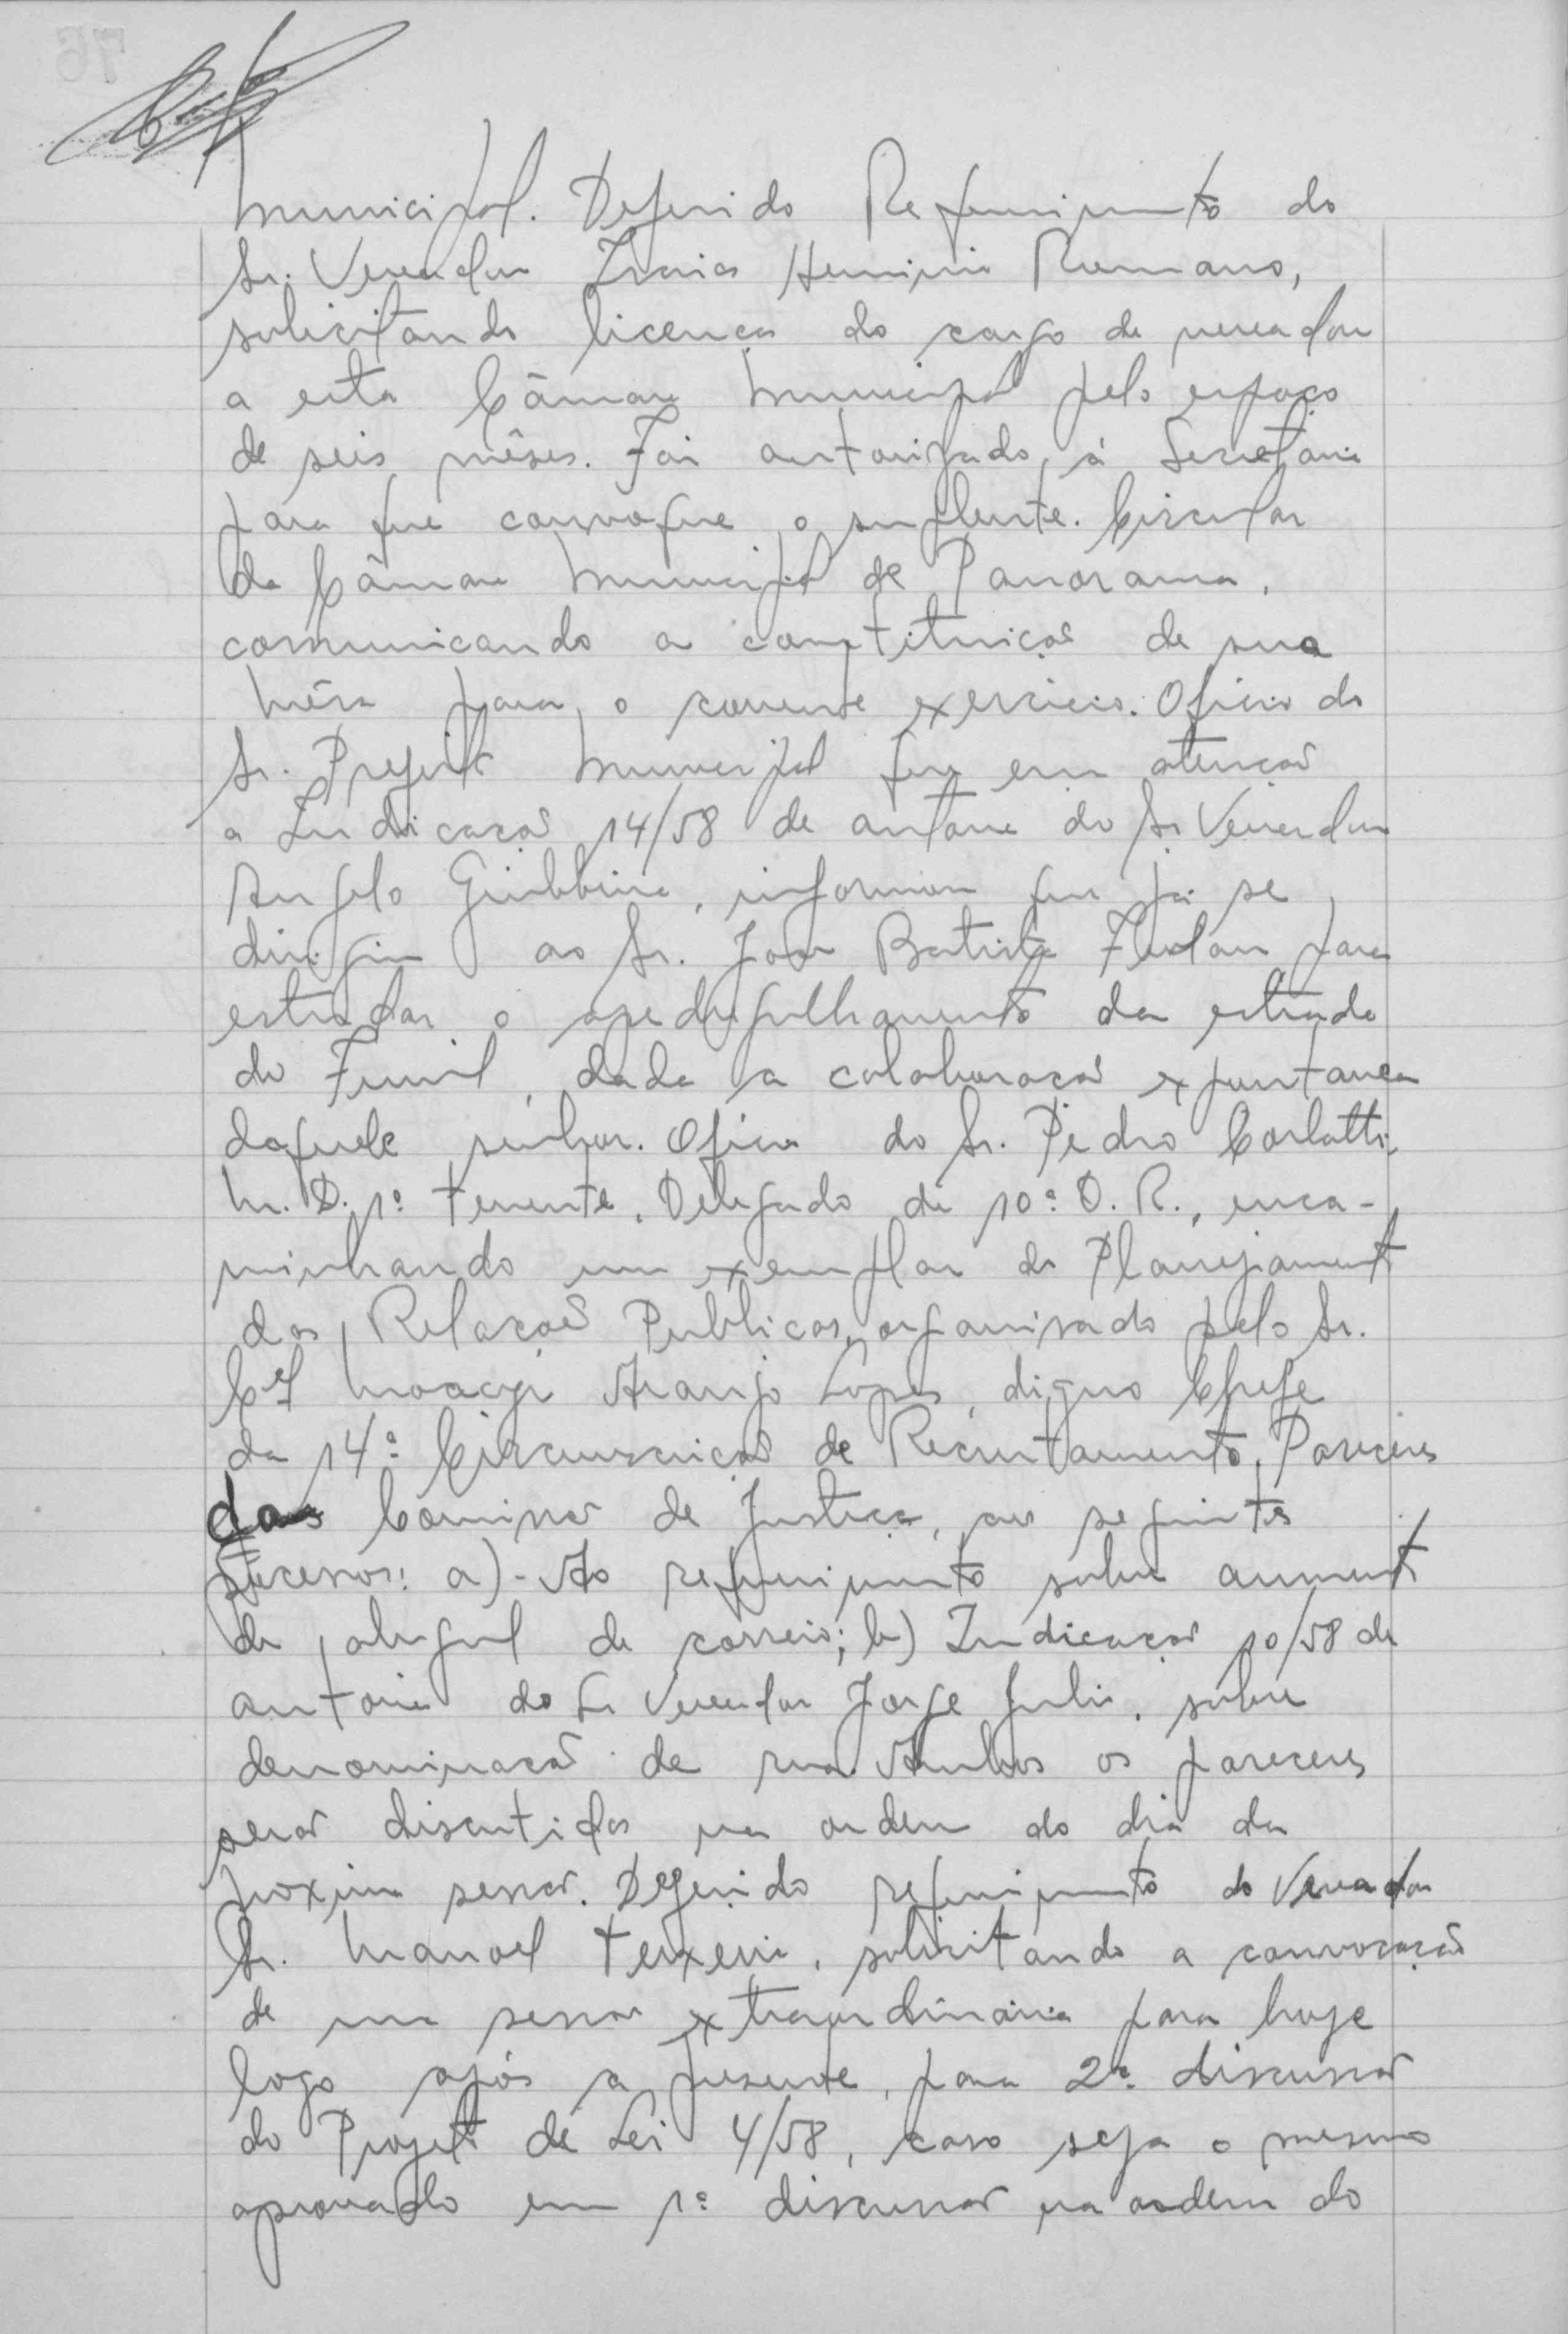 Municipal. Deferido Requerimento do
Sr. Vereador Izaias Herminio Romano,
solicitando licença do cargo de vereador
a esta Câmara Municipal pelo espaço
de seis mêses. Foi autorizado à Secretaria
para que convoque o suplente. Circular
da Câmara Municipal de Panorama,
comunicando a constituição de sua
Mêsa para o corrente exercicio. Oficio do
Sr. Prefeito Municipal que em atenção
a Indicação 14/58 de autoria do Sr Vereador
Angelo Giubbina, informou que já se
dirigiu ao Sr. João Batista Furlan para
estudar o apedregulhamento da estrada
do Funil, dada a colaboração expontanea
daquele senhor. Oficio do Sr. Pedro Carlatti,
M. D. 1º tenente, Delegado da 10ª D. R., enca-
minhando um exemplar do Planejamento
das Relações Publicas, organisado pelo Sr.
Cel Moacyr Araujo Lopes, digno Chefe
da 14ª Circunscrição de Recrutamento. Pareceres
das Comissão de Justiça, aos seguintes
processos: a)- Ao requerimento sobre aumento
de aluguel do correio; b) Indicação 10/58 de
autoria do Sr Vereador Jorge Julio, sobre
denominação de rua. Ambos os pareceres
serão discutidos na ordem do dia da
proxima sessão. Deferido requerimento do Vereador
Sr. Manoel Teixeira, solicitando a convocação
de uma sessão extraordinária para hoje
logo após a presente, para 2ª discussão
do Projeto de Lei 4/58, caso seja o mesmo
aprovado em 1ª discussão na ordem do